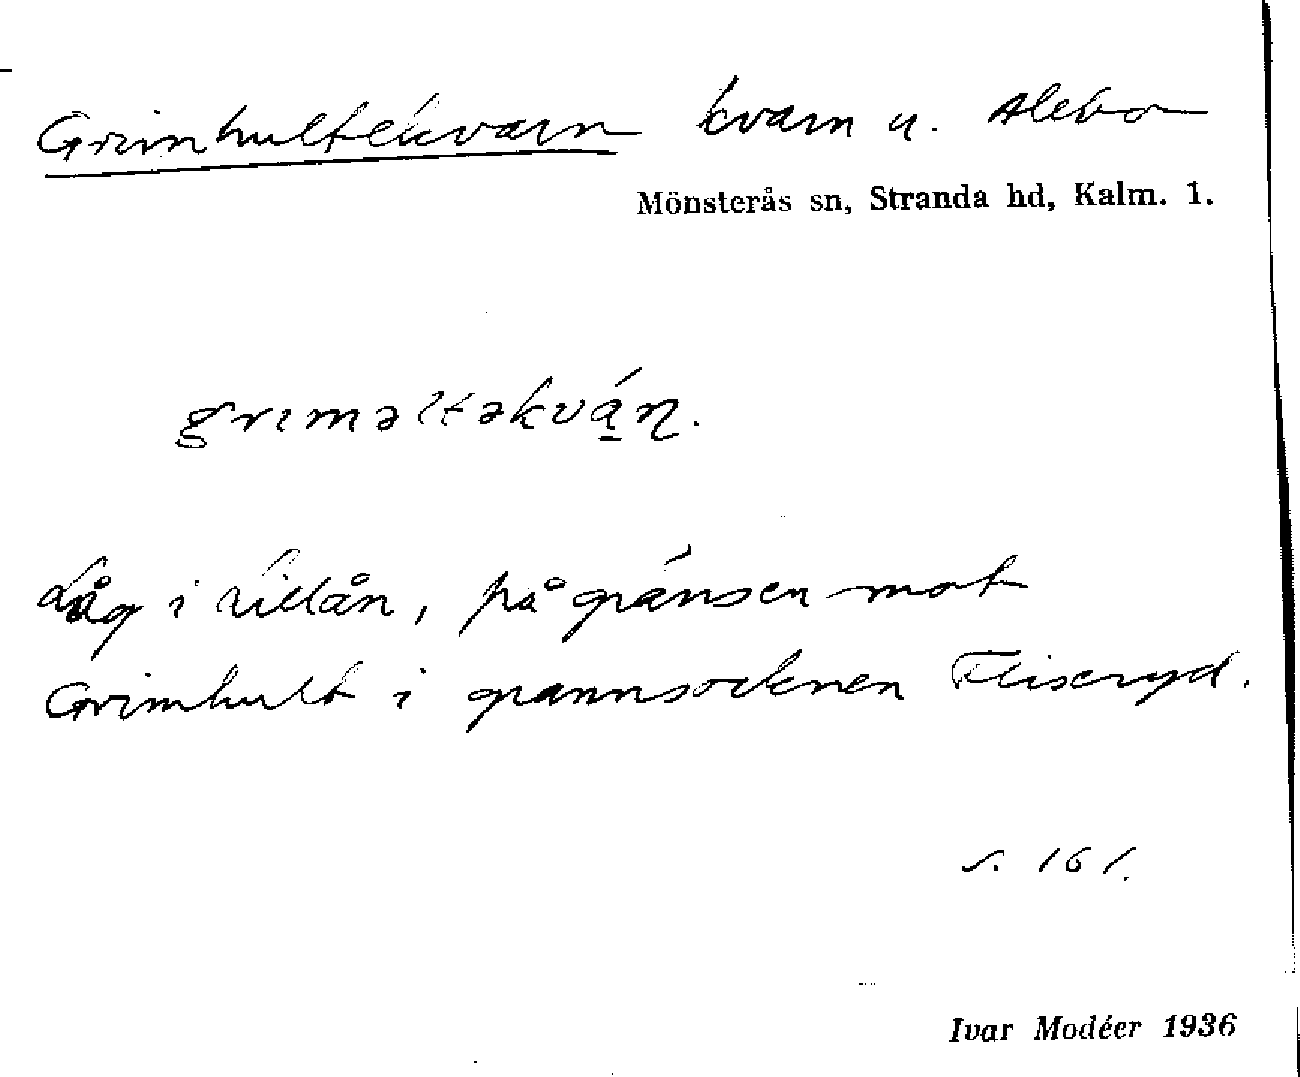 Grimhultekvarn kvarn u. Alebo
Mönsterås sn, Stranda hd, Kalm. l.
grıməltəkvá̱ɳ.
Låg i Lillån, på gränsen mot
Grimhult i grannsocknen Fliseryd.
s. 161.
Ivar Modéer 1936